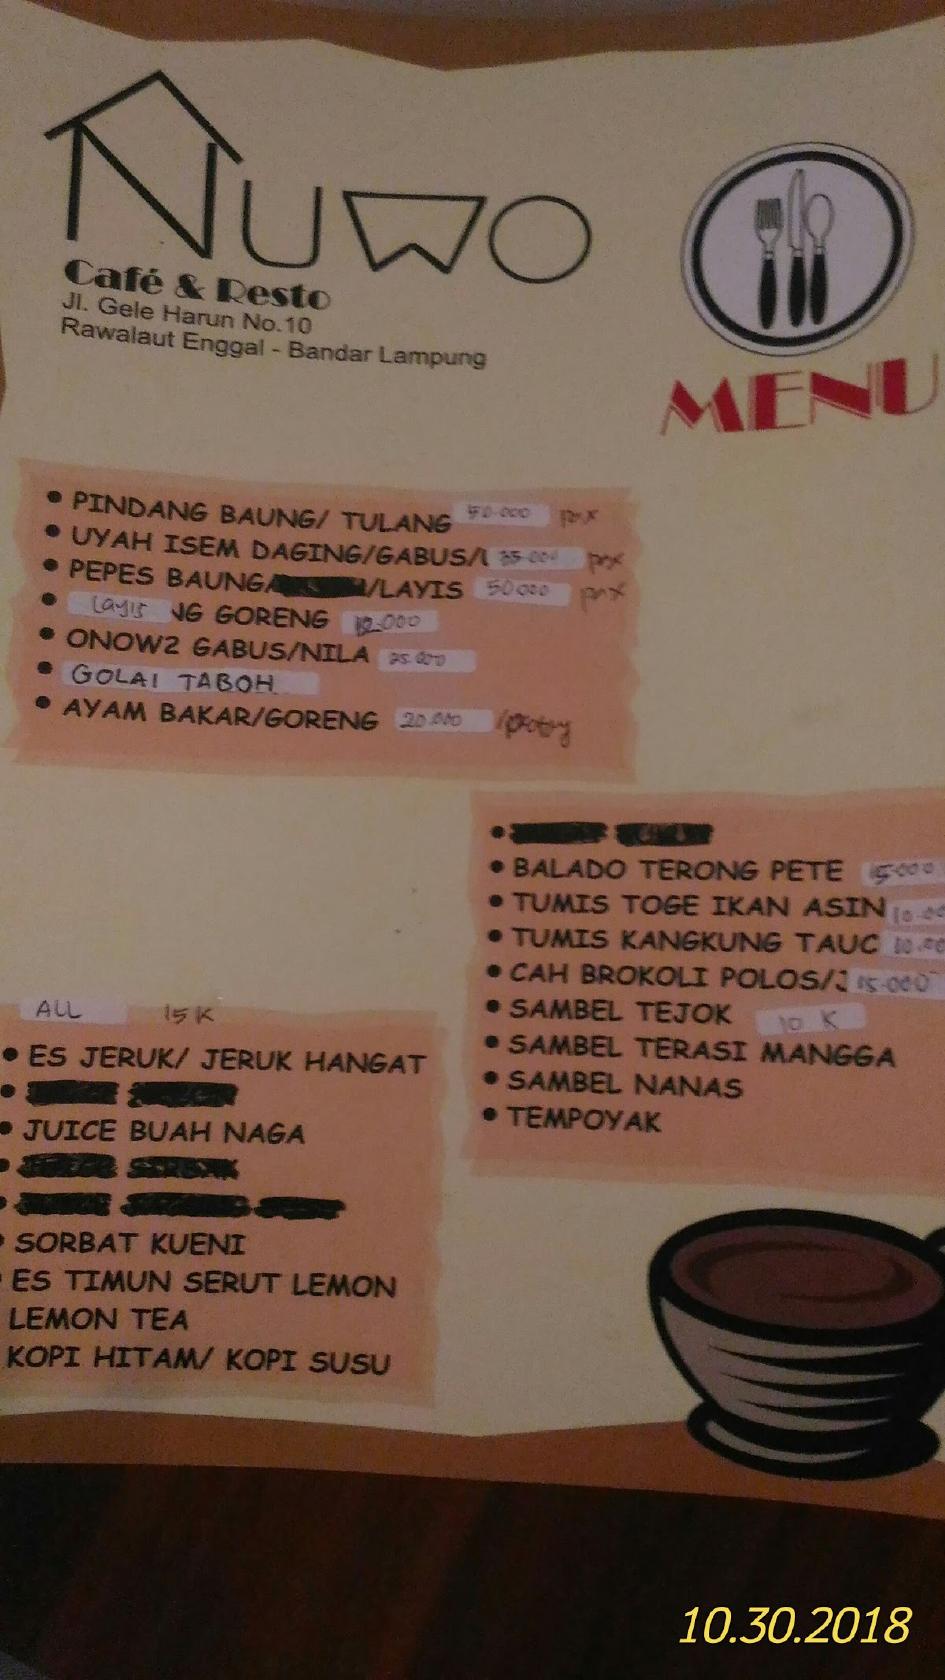 NUWO
Café & Resto
Jl. Gele Harun No.10
Rawalaut Enggal - Bandar Lampung
MENU
• PINDANG BAUNG/ TULANG 50.000
• UYAH ISEM DAGING/GABUS/ 35.000
• PEPES BAUNG/ /LAYIS 50000
• Layis NG GORENG 12.000
• ONOW2 GABUS/NILA 25.000
• GOLAI TABOH
• AYAM BAKAR/GORENG 20.000
• BALADO TERONG PETE 15.000
• TUMIS TOGE IKAN ASIN 10.00
• TUMIS KANGKUNG TAUC 10.00
• CAH BROKOLI POLOS/ 15.000
• SAMBEL TEJOK 10 K
• SAMBEL TERASI MANGGA
• SAMBEL NANAS
• TEMPOYAK
ALL 15 K
• ES JERUK/ JERUK HANGAT
• JUICE BUAH NAGA
SORBAT KUENI
ES TIMUN SERUT LEMON
LEMON TEA
KOPI HITAM/ KOPI SUSU
10.30.2018